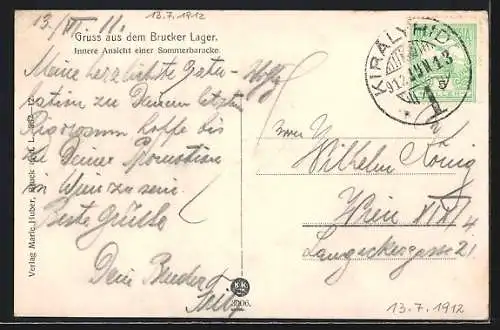 13./VII. 11.
13.7.1912
Gruss aus dem Brucker Lager.
Innere Ansicht einer Sommerbaracke.
Meine herzlichste Gratu-
lation zu Deinem letzten
Rigorosum hoffe bis
zu Deiner Promotion
in Wien zu sein.
Beste Grüsse
Dein Bruder
Verlag Marie Huber, Bruck
KIRÁLYHIDA
Herrn
Wilhelm König
Wien XVIII/4
21
3006.
13.7.1912